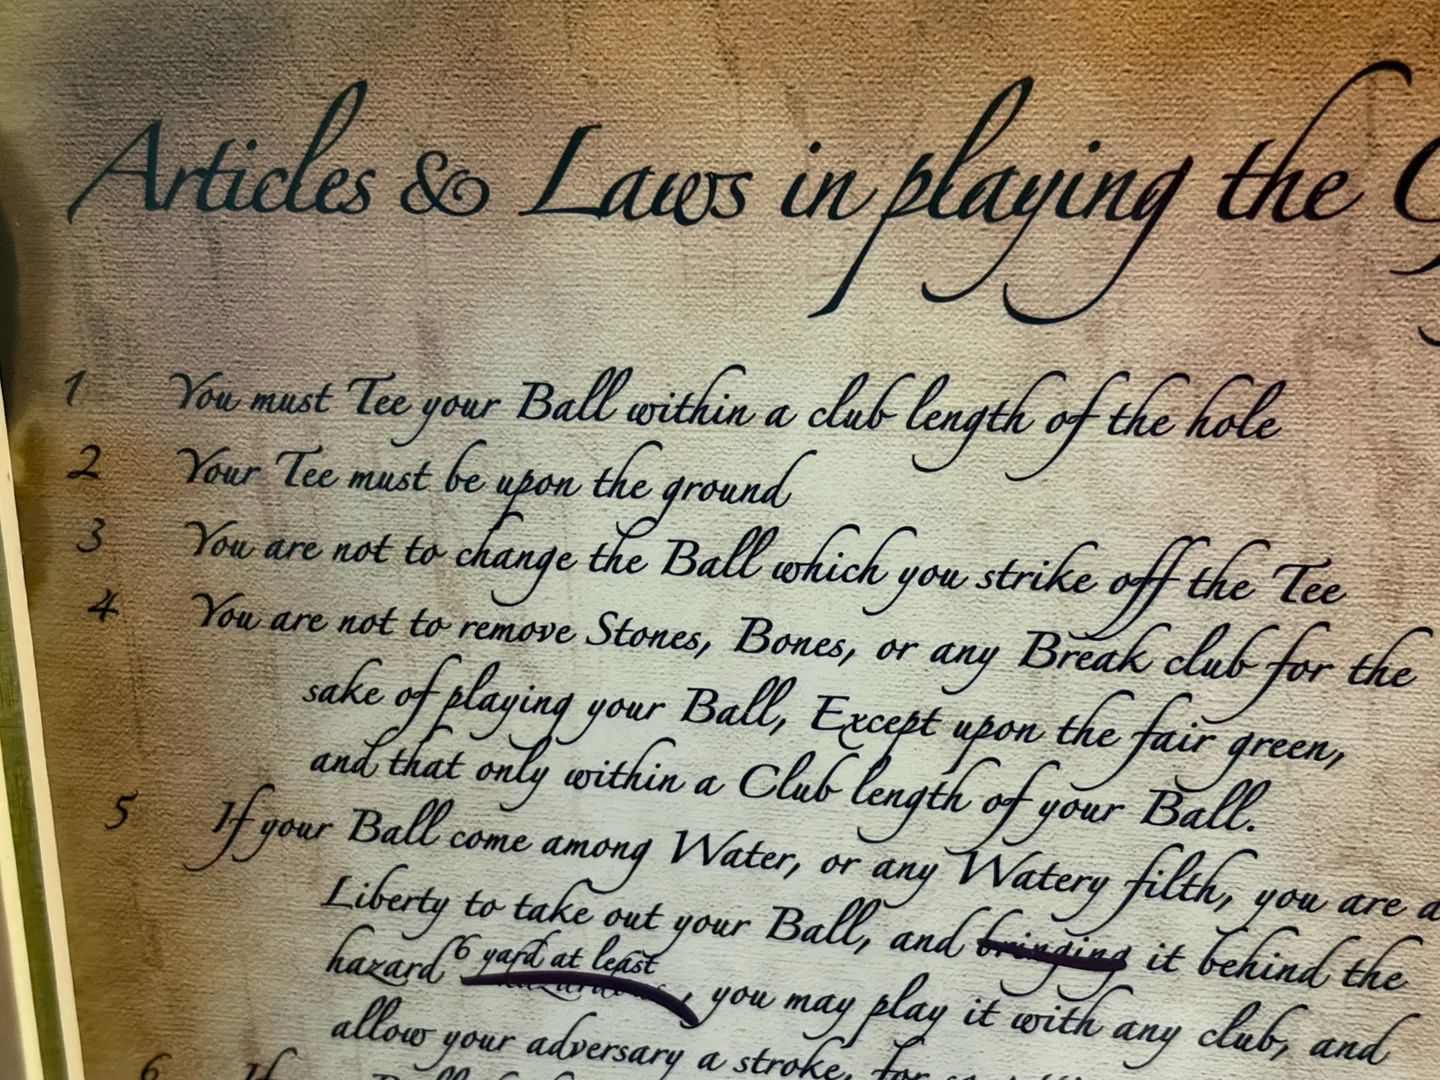 Articles & Laws in playing the
1 You must Tee your Ball within a club length of the hole
2 Your Tee must be upon the ground
3 You are not to change the Ball which you strike off the Tee
4 You are not to remove Stones, Bones, or any Break club for the
sake of playing your Ball, Except upon the fair green,
and that only within a Club length of your Ball.
5 If your Ball come among Water, or any Watery filth, you are a
Liberty to take out your Ball, and bringing it behind the
hazard 6 yard at least, you may play it with any club, and
allow your adversary a stroke, for
6 If